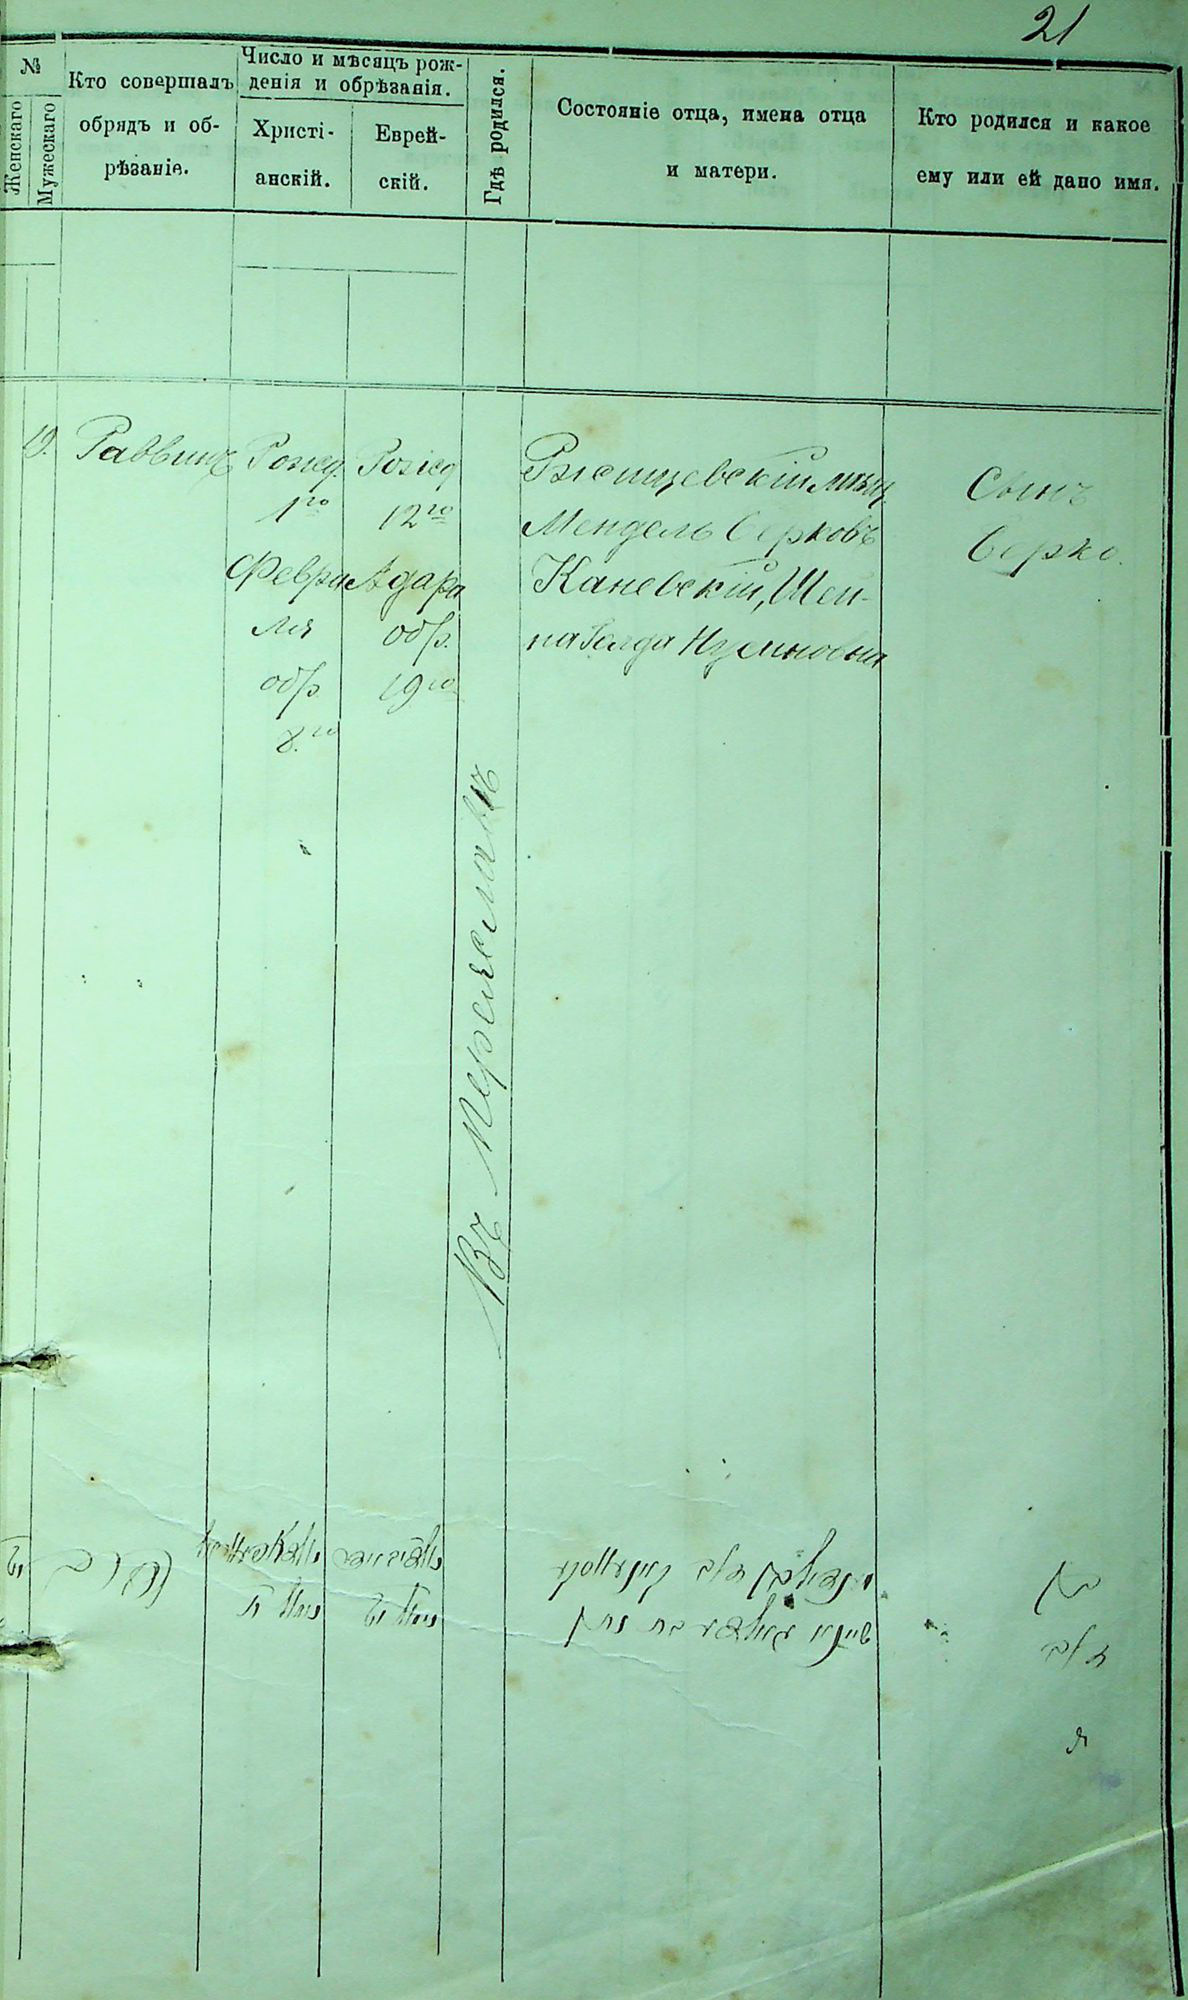 21
№
Женскаго
Мужескаго
Кто совершалъ
обрядъ и об-
рѣзаніе.
Число и мѣсяцъ рож-
денія и обрѣзанія.
Христі-
анскій.
Еврей-
скій.
Гдѣ родился.
Состояніе отца, имена отца
и матери.
Кто родился и какое
ему или ей дано имя.
19.
Раввинъ
Рожд.
1го
Февра
ля
обр.
8.го
Рожд
12го
Адара
обр.
19го
Въ Переяславѣ
Ржищевскій мѣщ.
Мендель Берковъ
Каневскій, Шей-
на Голда Нусиновна
Сынъ
Берко.
הרב
בן